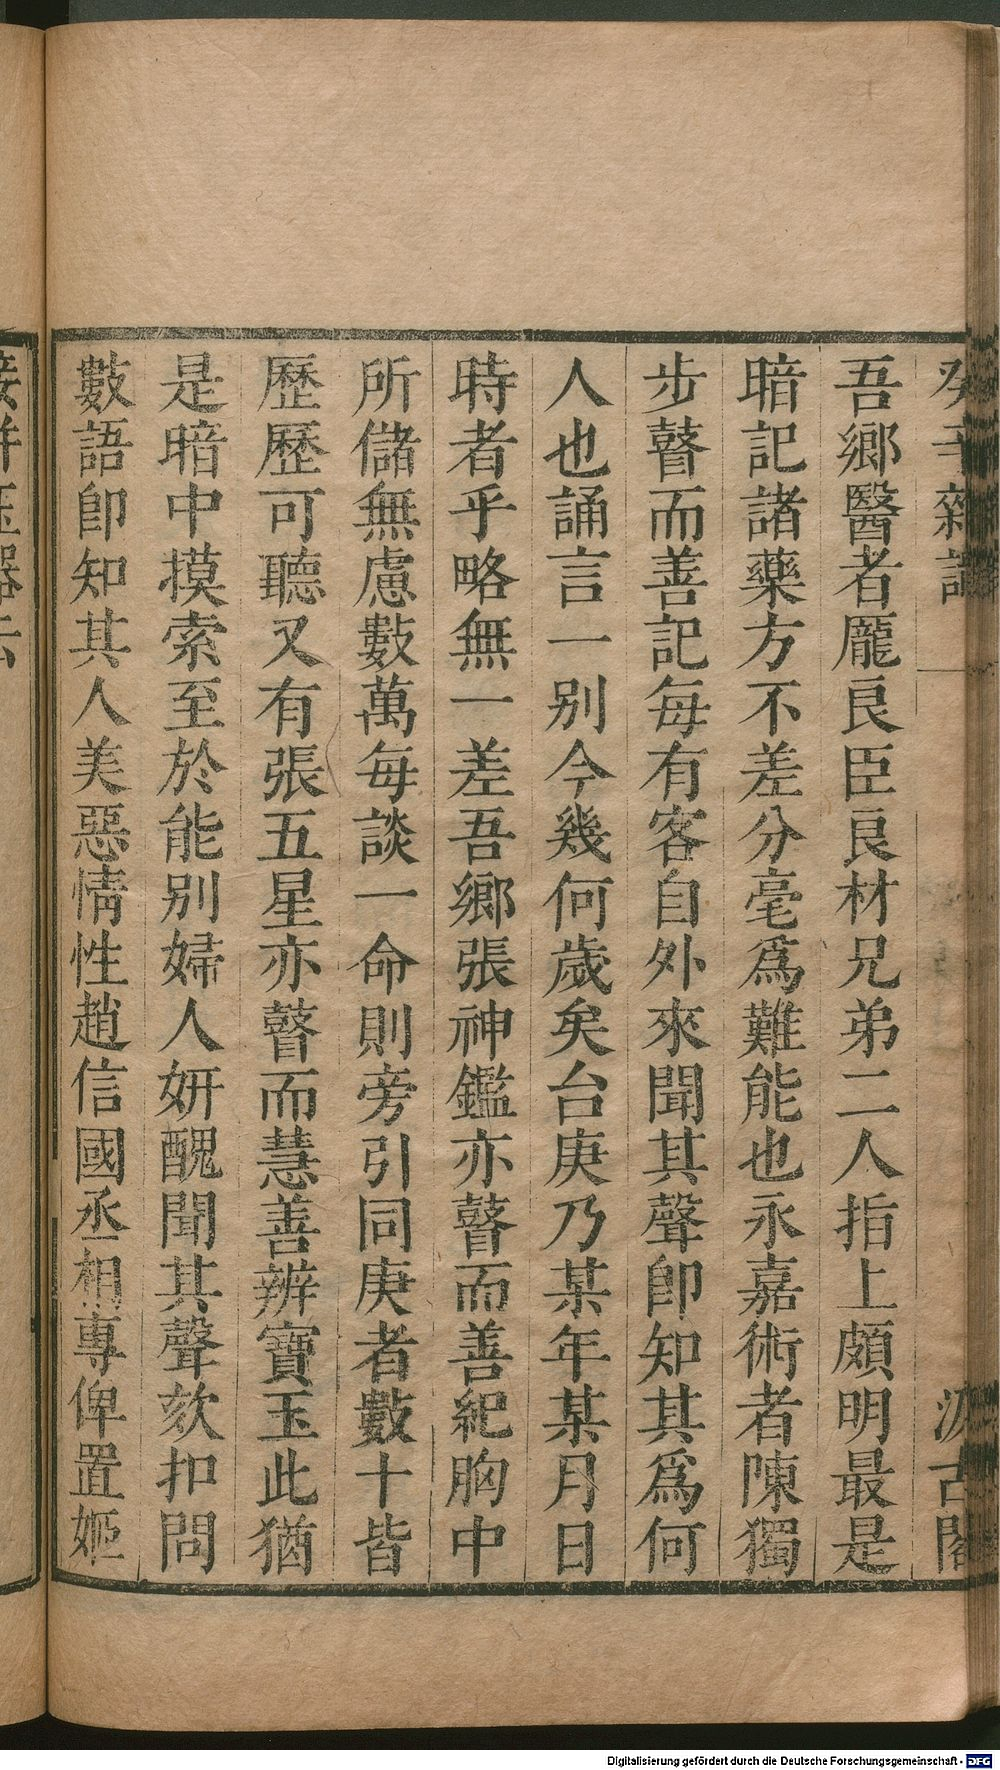 癸辛雜識
汲古閣
吾鄉醫者龐良臣良材兄弟二人指上頗明最是
暗記諸藥方不差分毫爲難能也永嘉術者陳獨
步瞽而善記每有客自外來聞其聲卽知其爲何
人也誦言一别今幾何歲矣台庚乃某年某月日
時者乎略無一差吾鄉張神鑑亦瞽而善紀胸中
所儲無慮數萬每談一命則旁引同庚者數十皆
歷歷可聽又有張五星亦瞽而慧善辨寶玉此猶
是暗中摸索至於能别婦人妍醜聞其聲欬扣問
數語卽知其人美惡情性趙信國丞相專俾置姬
玉器
Digitalisierung gefördert durch die Deutsche Forschungsgemeinschaft - DFG